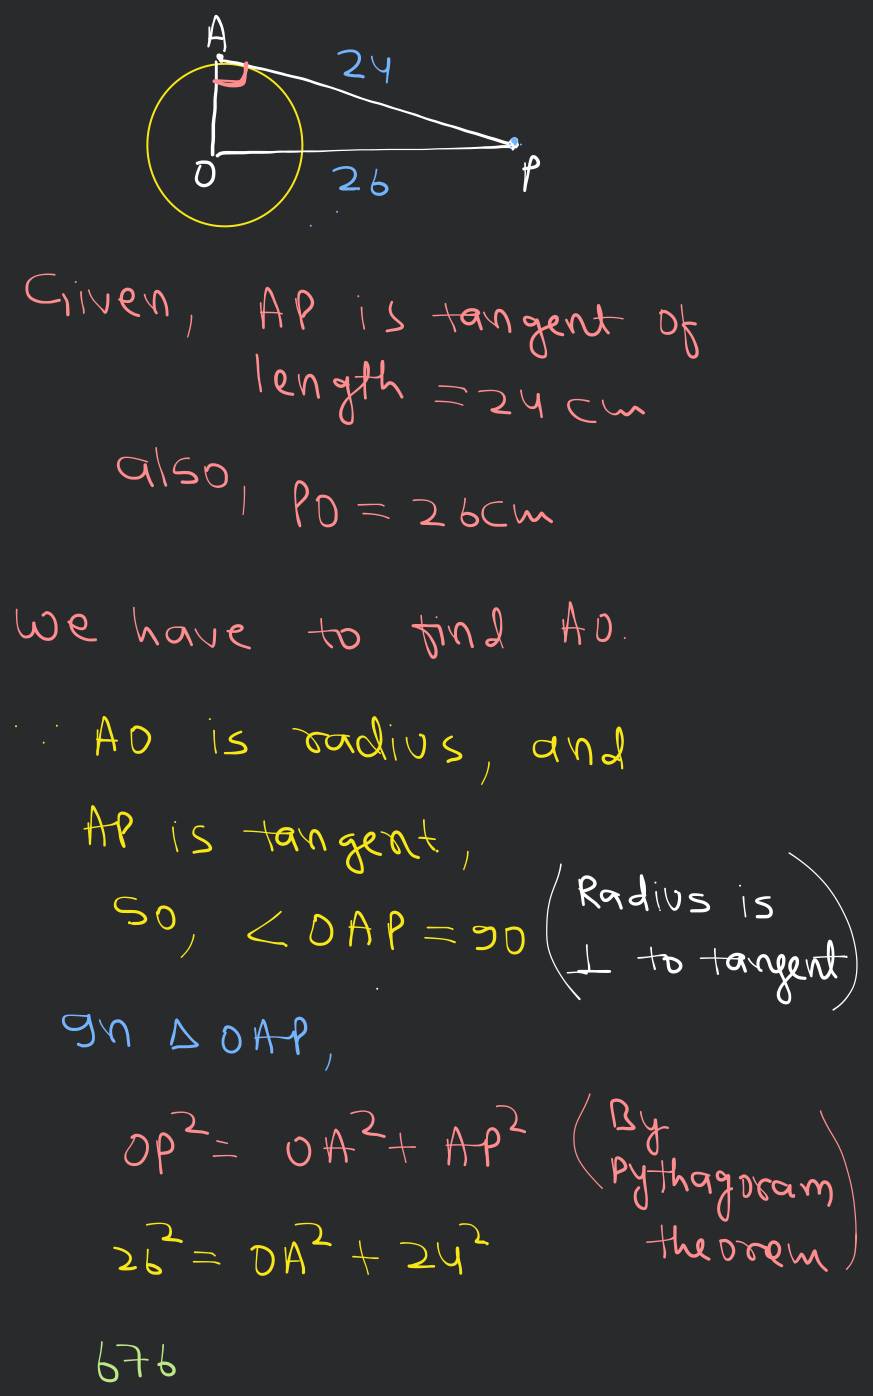 A
24
O
26
P
Given, AP is tangent of
length = 24 cm
also, PO = 26cm
We have to find AO.
∵ AO is radius, and
AP is tangent,
So, <OAP = 90 (Radius is
⊥ to tangent)
In Δ OAP,
OP² = OA² + AP² (By
Pythagoram
theorem)
26² = OA² + 24²
676